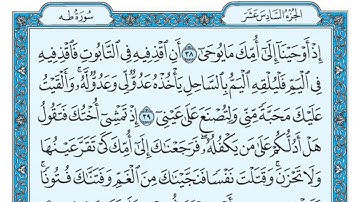 الجزء السادس عشر سورة طه
إِذْ أَوْحَيْنَا إِلَىٰ أُمِّكَ مَا يُوحَىٰ ٣٨ أَنِ اقْذِفِيهِ فِي التَّابُوتِ فَاقْذِفِيهِ
فِي الْيَمِّ فَلْيُلْقِهِ الْيَمُّ بِالسَّاحِلِ يَأْخُذْهُ عَدُوٌّ لِّي وَعَدُوٌّ لَّهُ وَأَلْقَيْتُ
عَلَيْكَ مَحَبَّةً مِّنِّي وَلِتُصْنَعَ عَلَىٰ عَيْنِي ٣٩ إِذْ تَمْشِي أُخْتُكَ فَتَقُولُ
هَلْ أَدُلُّكُمْ عَلَىٰ مَن يَكْفُلُهُ فَرَجَعْنَاكَ إِلَىٰ أُمِّكَ كَيْ تَقَرَّ عَيْنُهَا
وَلَا تَحْزَنَ وَقَتَلْتَ نَفْسًا فَنَجَّيْنَاكَ مِنَ الْغَمِّ وَفَتَنَّاكَ فُتُونًا